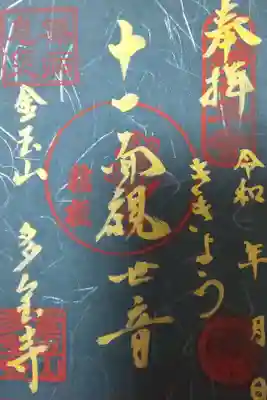 奉拝
令和 年 月 日
ききょう
十一面観世音
金玉山 多宝寺